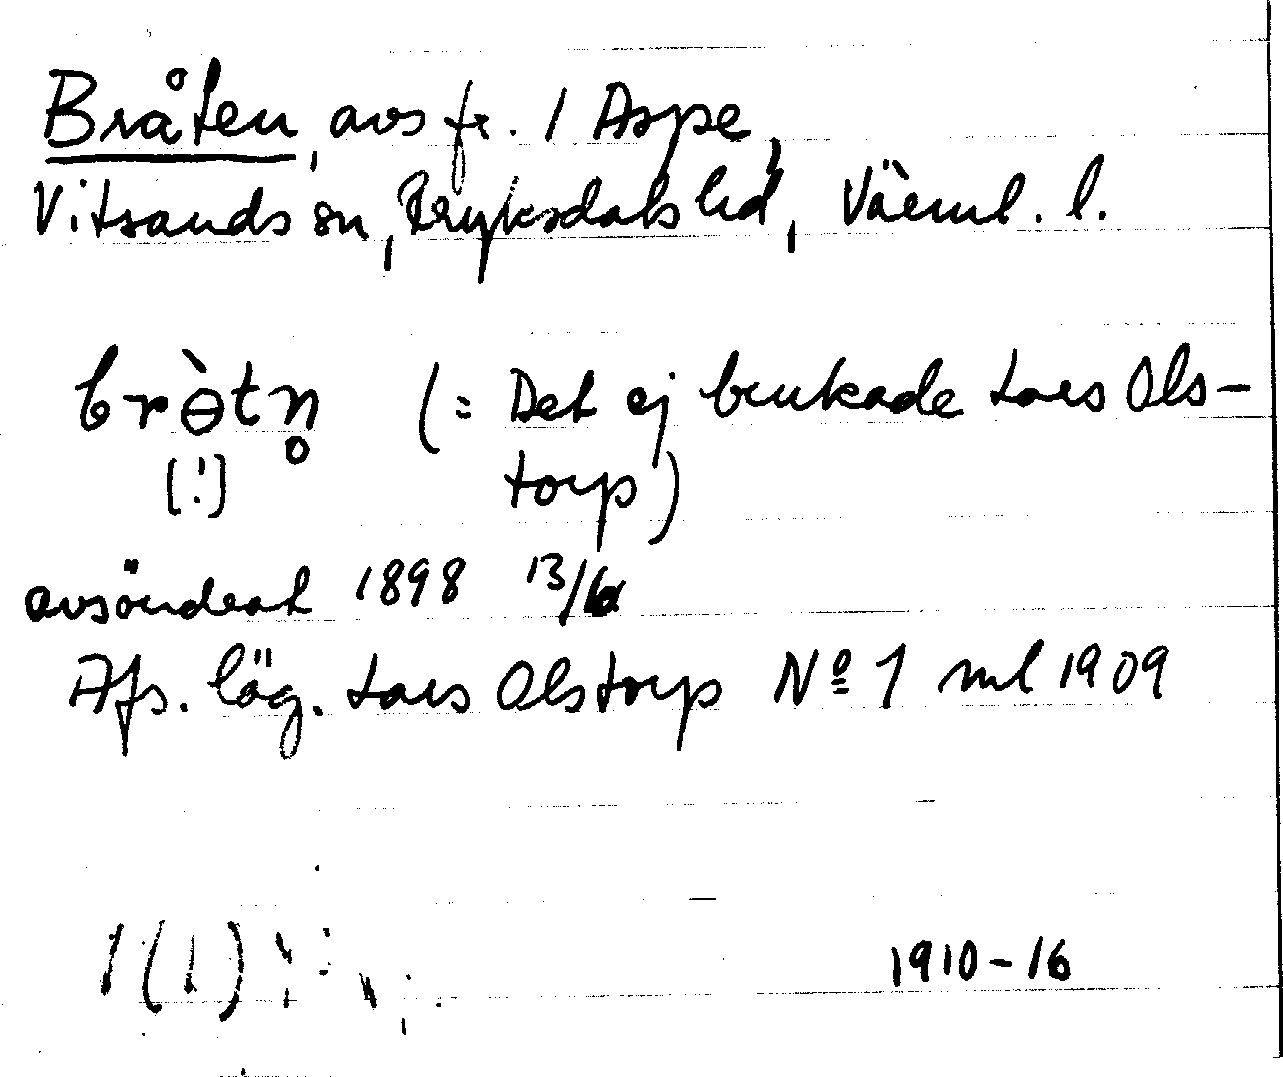 Bråten, avs fr. 1 Aspe,
Vitsands sn, Fryksdals hd, Värml. l.
brɵ̀tn̥ (= Det ej brukade Lars Ols-
[!] torp)
avsöndrat 1898 13/6
Afs. läg. Lars Olstorp Nº 1 ml 1909
1910-16